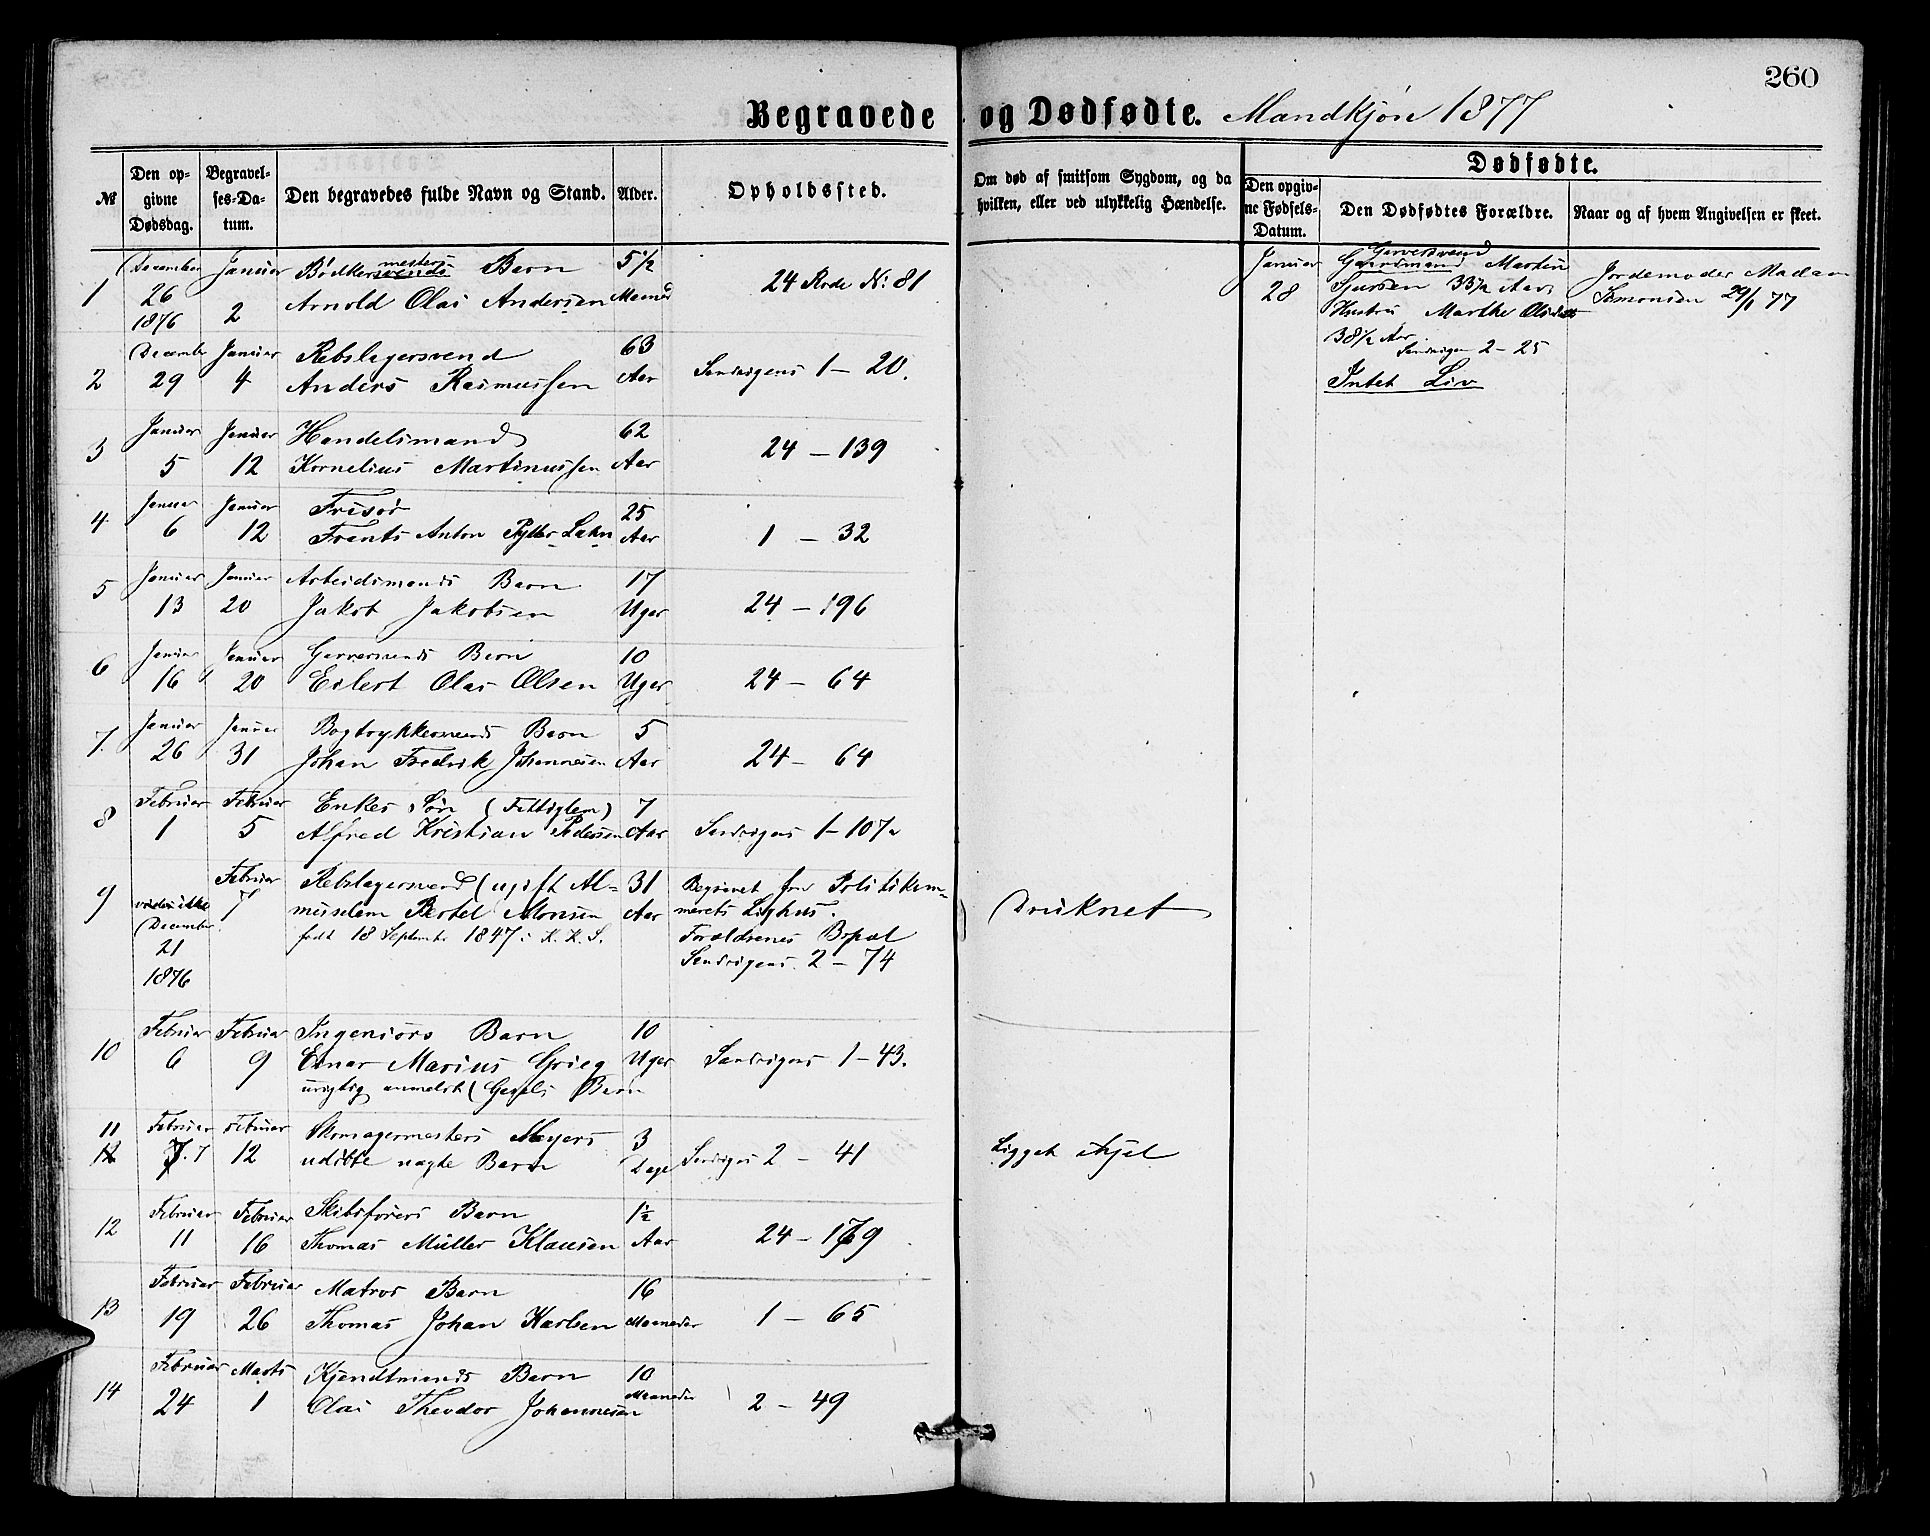 260
Begravede og Dødfødte. Mandkjøn 1877
№ Den opgivne Dødsdag. Begravelses-Datum. Den begravedes fulde Navn og Stand. Alder. Opholdssted. Om død af smitsom Sygdom, og da hvilken, eller ved ulykkelig Hændelse. Dødfødte.
Den opgivne Fødsels-Datum. Den Dødfødtes Forældre. Naar og af hvem Angivelsen er skeet.
1 December 26 1876 Januar 2 Bødkersvends mesters Barn
Arnold Olai Andersen 5 1/2 Maaned 24 Rode No 81
2 December 29 Januar 4 Rebslagersvend
Anders Rasmussen 63 Aar Sandvigens 1 - 20.
3 Januar 5 Januar 12 Handelsmand
Kornelius Martinussen 62 Aar 24 - 139
4 Januar 6 Januar 12 Frisør
Frants Anton Lahn 25 Aar 1 - 32
5 Januar 13 Januar 20 Arbeidsmands Barn
Jakob Jakobsen 17 Uger 24 - 196
6 Januar 16 Januar 20 Garversvends Barn
Eilert Olai Olsen 10 Uger 24 - 64
7. Januar 26 Januar 31 Bogtrykkersvends Barn
Johan Fredrik Johannesen 5 Aar 24 - 64
8 Februar 1 Februar 5 Enkes Søn (Fattiglem)
Alfred Kristian Pedersen 7 Aar Sandvigens 1 - 107a
9 December 21 1876 Februar 7 Rebslagersvend (ugift Al-
muselem Bertel Monsen
født 18 September 1847 i K. K. S. 31 Aar
Begravet fra Politikam-
merets Lighus.
Forældrenes Bopæl
Sandvigens. 2 - 74
Druknet
10 Februar 6 Februar 9 Ingeniørs Barn
Einar Marius Grieg
urigtig anmeldt ( Barn 10 Uger Sandvigens 1 - 43.
11 Februar 7 Februar 12 Skomagermesters Meyers
udøbte Barn 3 Dage Sandvigens 2 - 41
Ligget ihjel
12 Februar 11 Februar 16 Skibsførers Barn
Thomas Müller Klausen 1 1/2 Aar 24 - 179
13 Februar 19 Februar 26 Matros Barn
Thomas Johan Karlsen 16 Maaneder 1 - 65
14 Februar 24 Marts 1 Kjendtmands Barn
Olai Theodor Johannesen 10 Maaneder 2 - 49
Januar 28
Garversvend
Gaardmand Martin
Sjursen 33 1/2 Aar
Hustru Marthe Olsdatter
38 1/2 Aar
Sandvigen 2 - 25
Intet Liv
Jordemoder Madam
Simonsen 29/1 77